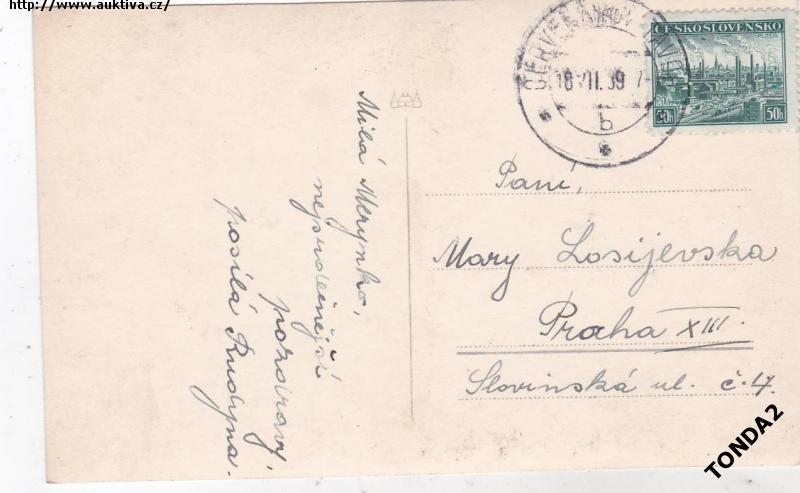 http://www.auktiva.cz/
ČESKOSLOVENSKO
PLZEŇ
50h 50h
18 VII. 39
b
Milá Merynko,
nejsrdečnější
pozdravy
posílá Rudyna.
Paní,
Mary Losijevska
Praha XIII.
Slovinská ul. č.4.
TONDA2